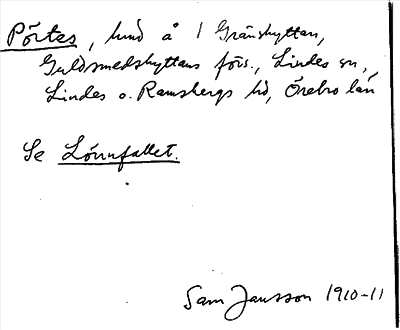 Pörtes, lund å 1 Gränshyttan,
Guldsmedshyttans förs., Lindes sn,
Lindes o. Ramsbergs hd, Örebro län
Se Lönnfallet.
Sam Jansson 1910-11